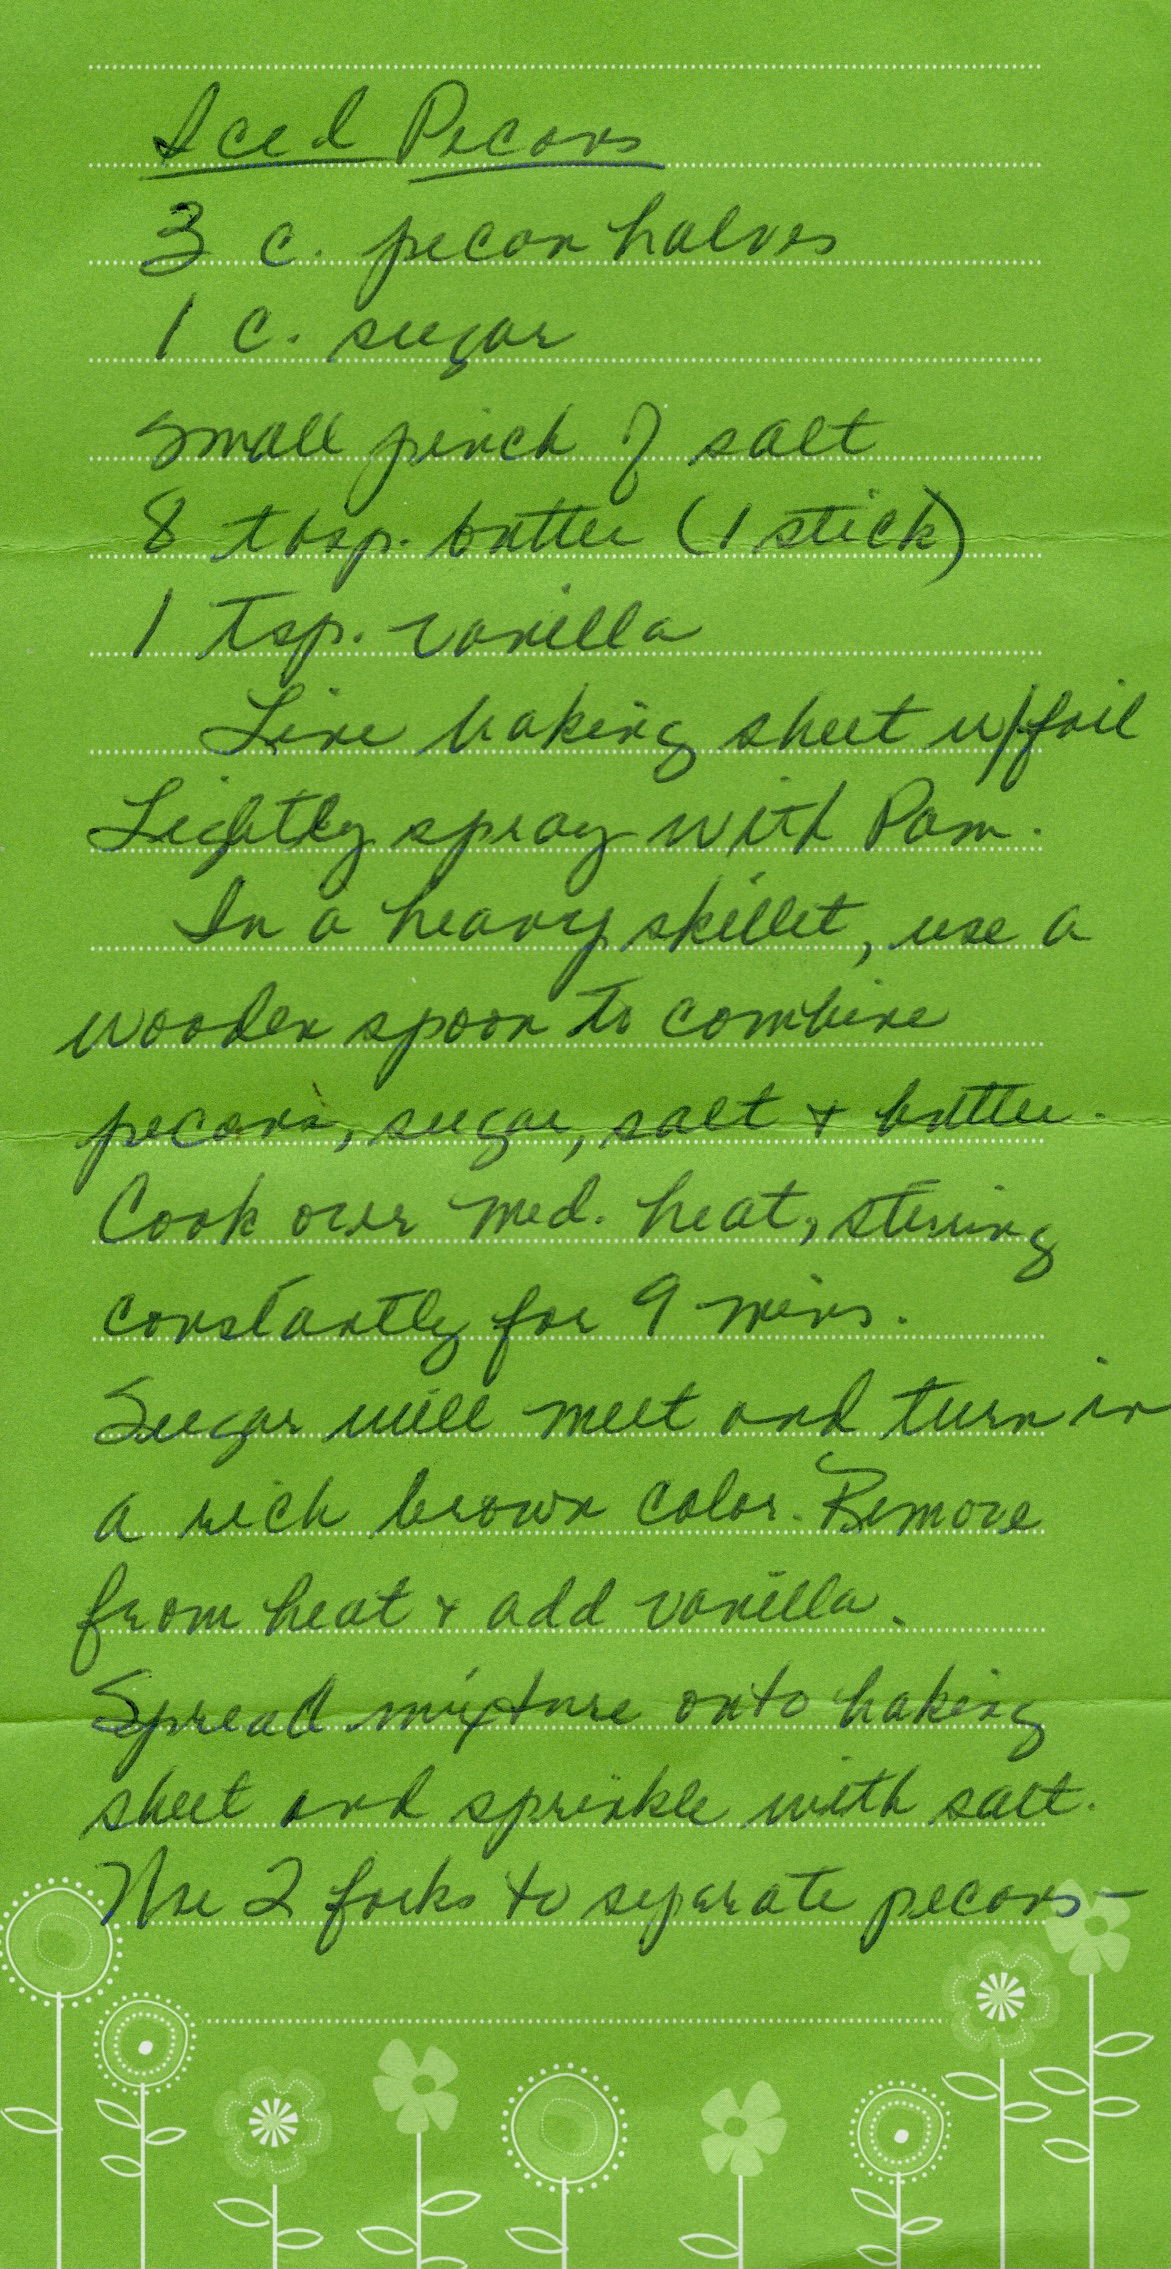 Iced Pecans
3 c. pecan halves
1 c. sugar
small pinch of salt
8 tbsp. butter (1 stick)
1 tsp. vanilla
Line baking sheet w/foil
Lightly spray with Pam.
In a heavy skillet, use a
wooden spoon to combine
pecans, sugar, salt + butter.
Cook over med. heat, stirring
constantly for 9 mins.
Sugar will melt and turn in
a rich brown color. Remove
from heat + add vanilla.
Spread mixture onto baking
sheet and sprinkle with salt.
Use 2 forks to separate pecans-